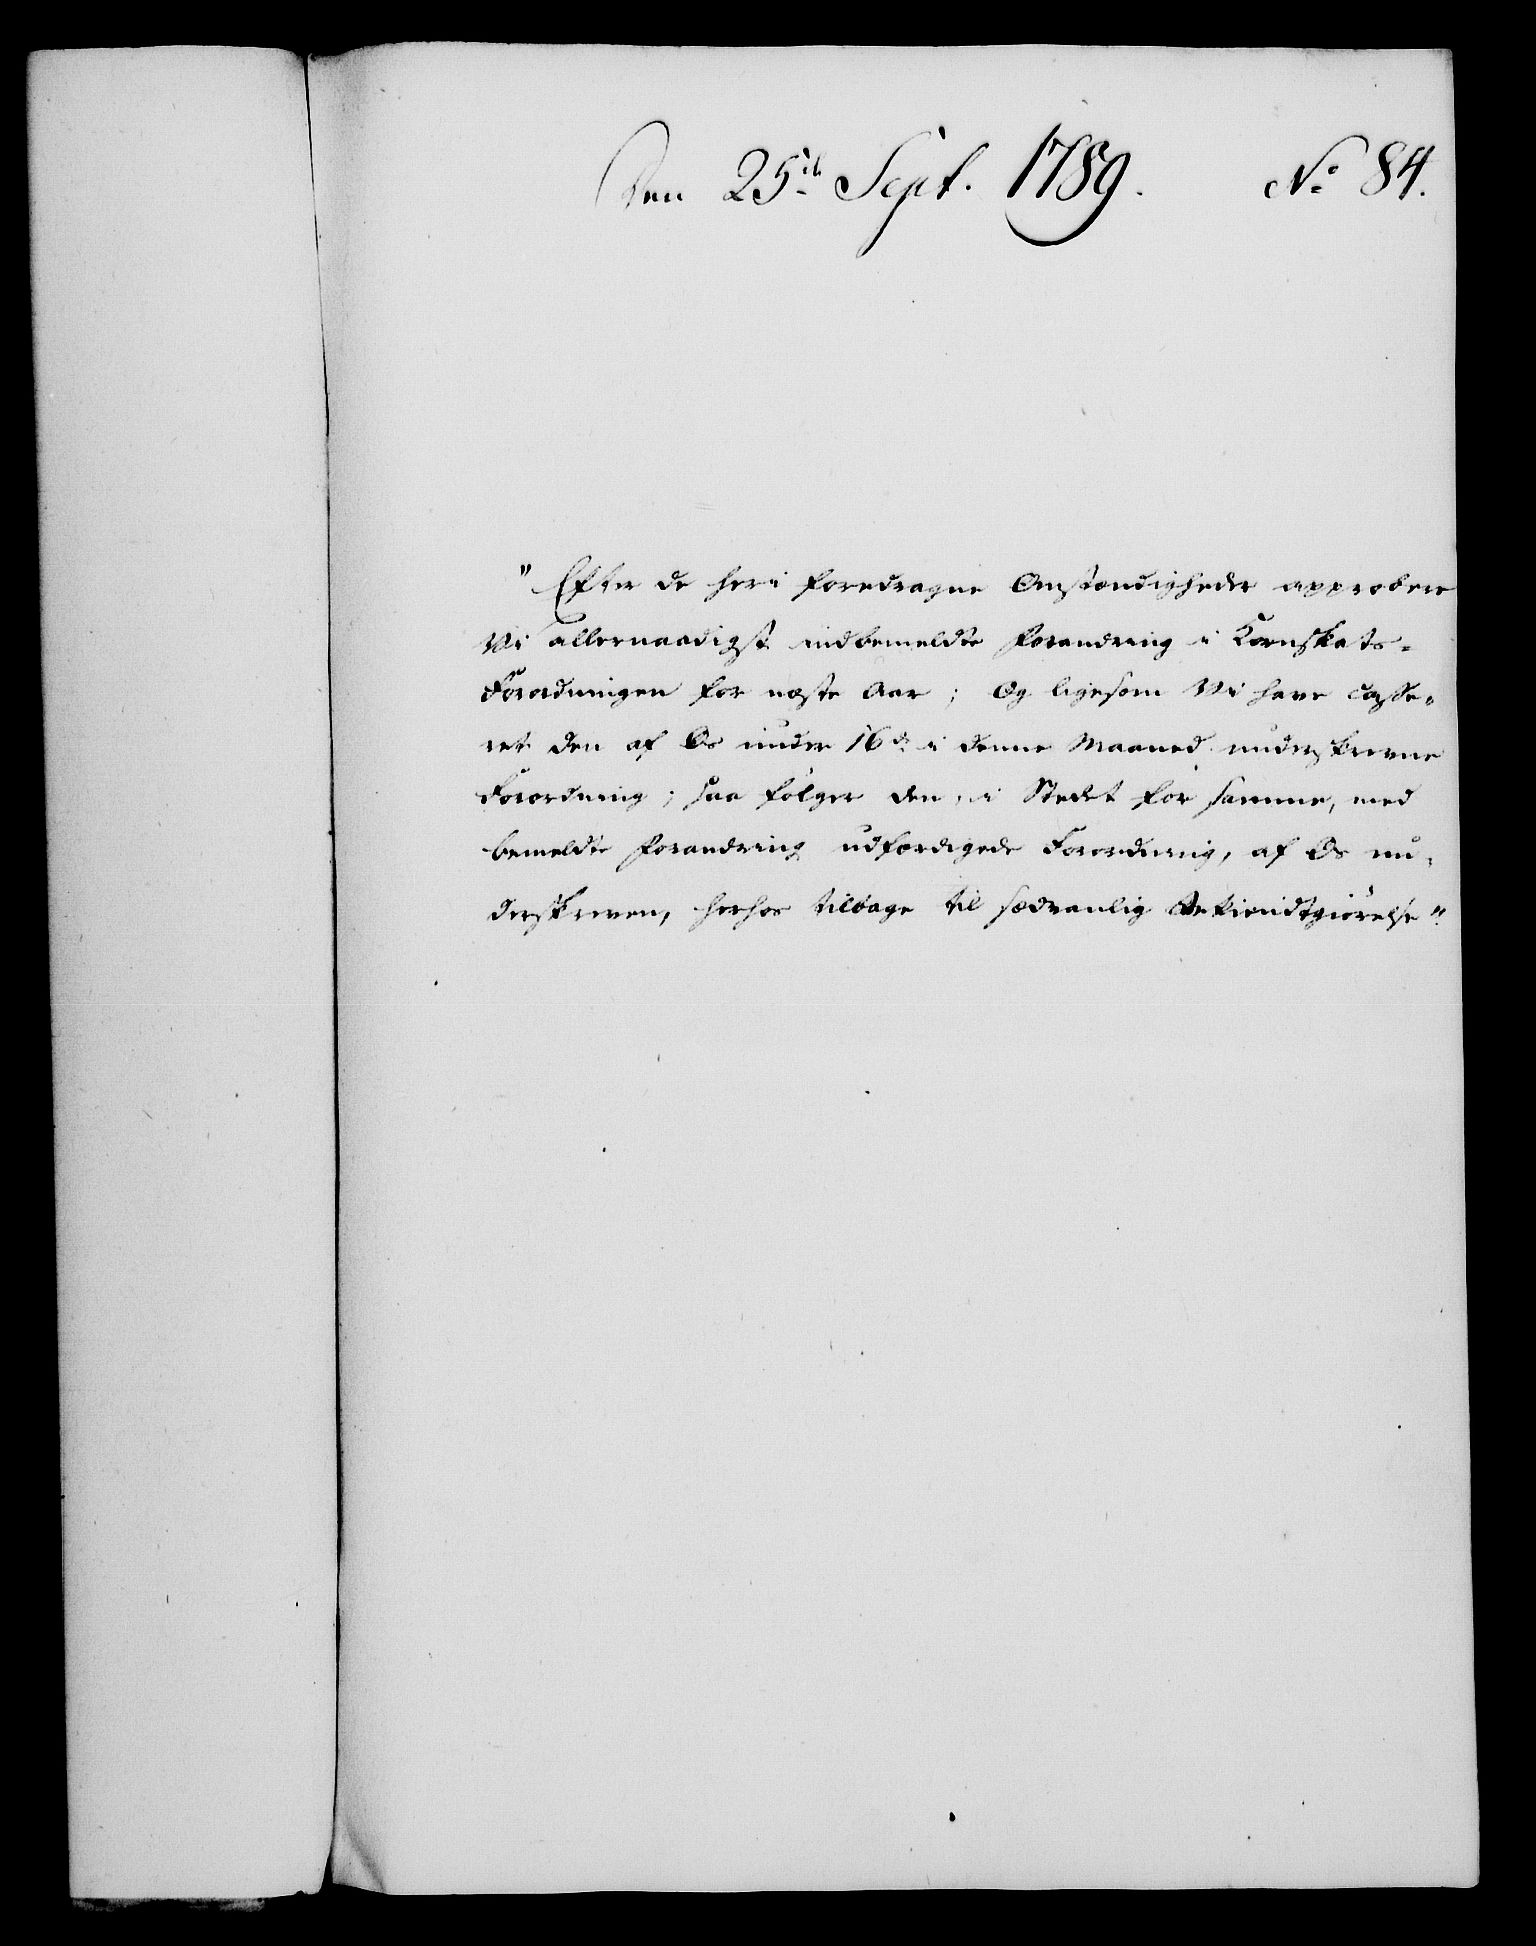 Den 25de Sept. 1789. No 84.
"Efter de heri foredragne Omstændigheder approbere
Vi allernaadigst indbemeldte Forandring i Kornskats-
Forordningen for næste Aar; Og ligesom Vi have casse-
ret den af Os under 16de i denne Maaned underskrevne
Forordning; saa følger den, i Stedet for samme, med
bemeldte Forandring udfærdigede Forordning, af Os un-
derskreven, herhos tilbage til sædvanlig Bekiendtgiørelse".